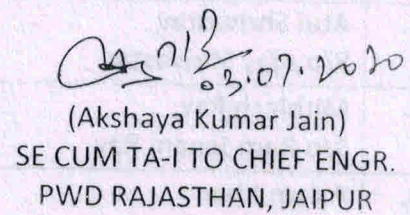 03.07.2020
(Akshaya Kumar Jain)
SE CUM TA-I TO CHIEF ENGR.
PWD RAJASTHAN, JAIPUR